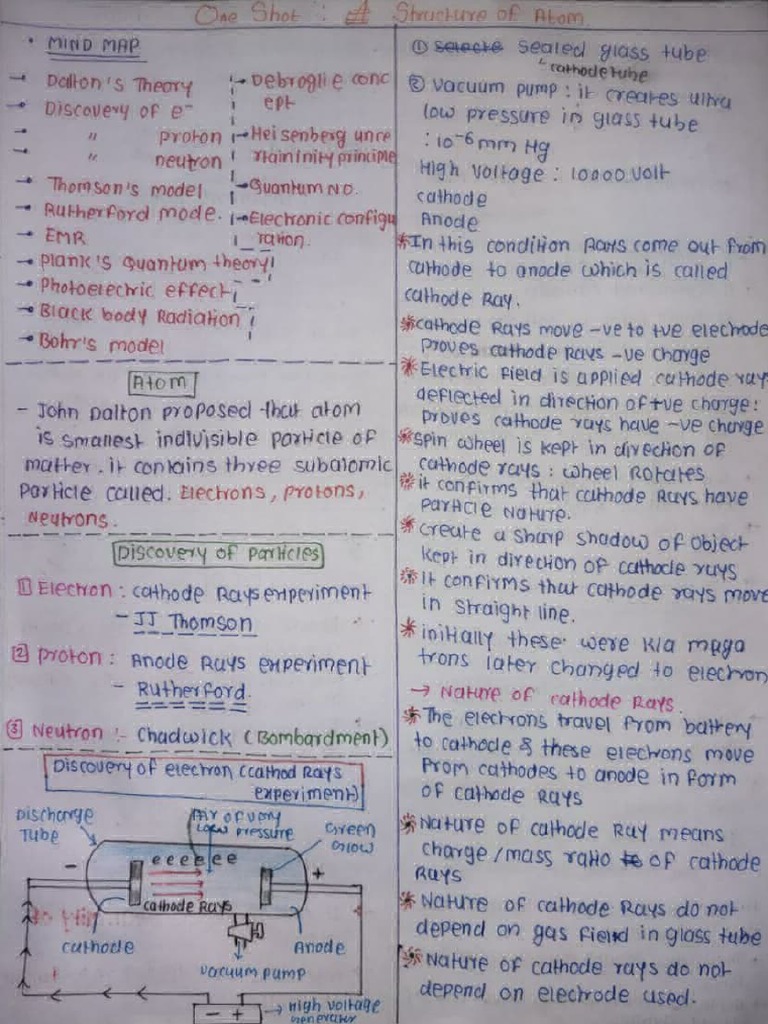 One Shot : A Structure of Atom
• MIND MAP
→ Dalton's Theory
→ Discovery of e⁻
→ " proton
→ " neutron
→ Thomson's model
→ Rutherford mode.
→ EMR
→ Plank's Quantum theory
→ Photoelectric effect
→ Black body Radiation
→ Bohr's model
→ Debroglie conc
ept
→ Heisenberg unce
rtaininity principle
→ Quantum NO.
→ Electronic configu
ration.
Atom
- John Dalton proposed that atom
is smallest indivisible particle of
matter. it contains three subatomic
Particle called. Electrons, protons,
Neutrons.
Discovery of Particles
1 Electron : cathode Rays experiment
- JJ Thomson
2 proton : Anode Rays experiment
- Rutherford.
3 Neutron :- Chadwick (Bombardment)
Discovery of electron (cathod Rays
experiment)
Discharge
Tube
Air of very
low pressure
Green
Glow
-
e e e e e e
+
cathode Rays
cathode
Anode
vacuum pump
- +
→ High voltage
Generator
① selecte sealed glass tube
↳ cathode tube
② vacuum pump : it creates ultra
low pressure in glass tube
: 10⁻⁶ mm Hg
High voltage : 10000 volt
cathode
Anode
* In this condition Rays come out from
cathode to anode which is called
cathode Ray.
* cathode Rays move -ve to +ve electrode
proves cathode Rays -ve charge
* Electric field is applied cathode ray
deflected in direction of +ve charge :
proves cathode rays have -ve charge
* spin wheel is kept in direction of
cathode rays : wheel Rotates
* it confirms that cathode Rays have
particle nature.
* create a sharp shadow of object
kept in direction of cathode rays
* It confirms that cathode rays move
in straight line.
* initially these were k/a maga
trons later changed to electron
→ Nature of cathode Rays.
* The electrons travel from battery
to cathode & these electrons move
from cathodes to anode in form
of cathode Rays
* Nature of cathode Ray means
charge/mass ratio of cathode
Rays
* Nature of cathode Rays do not
depend on gas field in glass tube
* Nature of cathode rays do not
depend on electrode used.